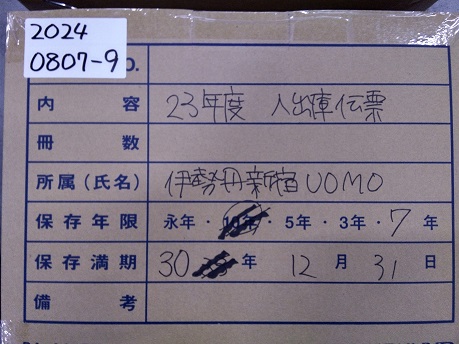 2024
0807-9
O.
内容 23年度 入出庫伝票
冊数
所属(氏名) 伊勢丹新宿UOMO
保存年限 永年・10年・5年・3年・7年
保存満期 30年 12月 31日
備考